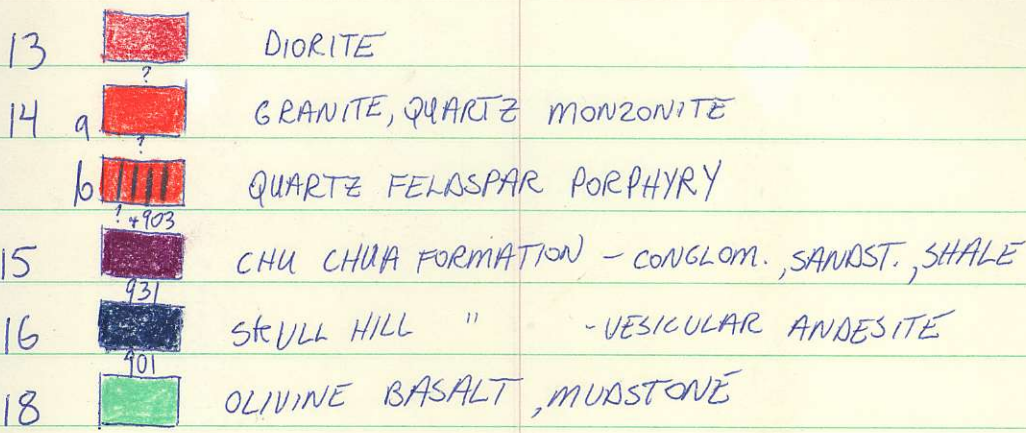 13 DIORITE
?
14 a GRANITE, QUARTZ MONZONITE
?
b QUARTZ FELDSPAR PORPHYRY
? +903
15 CHU CHUA FORMATION - CONGLOM., SANDST., SHALE
931
16 SKULL HILL " - VESICULAR ANDESITE
901
18 OLIVINE BASALT, MUDSTONE